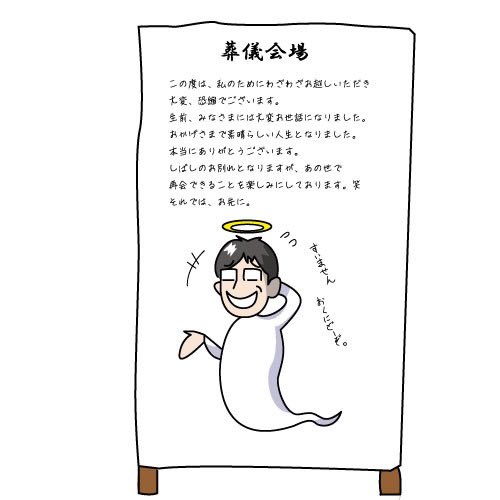 葬儀会場
この度は、私のためにわざわざお越しいただき
大変、恐縮でございます。
生前、みなさまには大変お世話になりました。
おかげさまで素晴らしい人生となりました。
本当にありがとうございます。
しばしのお別れとなりますが、あの世で
再会できることを楽しみにしております。笑
それでは、お先に。
すいません
おくにどーぞ。